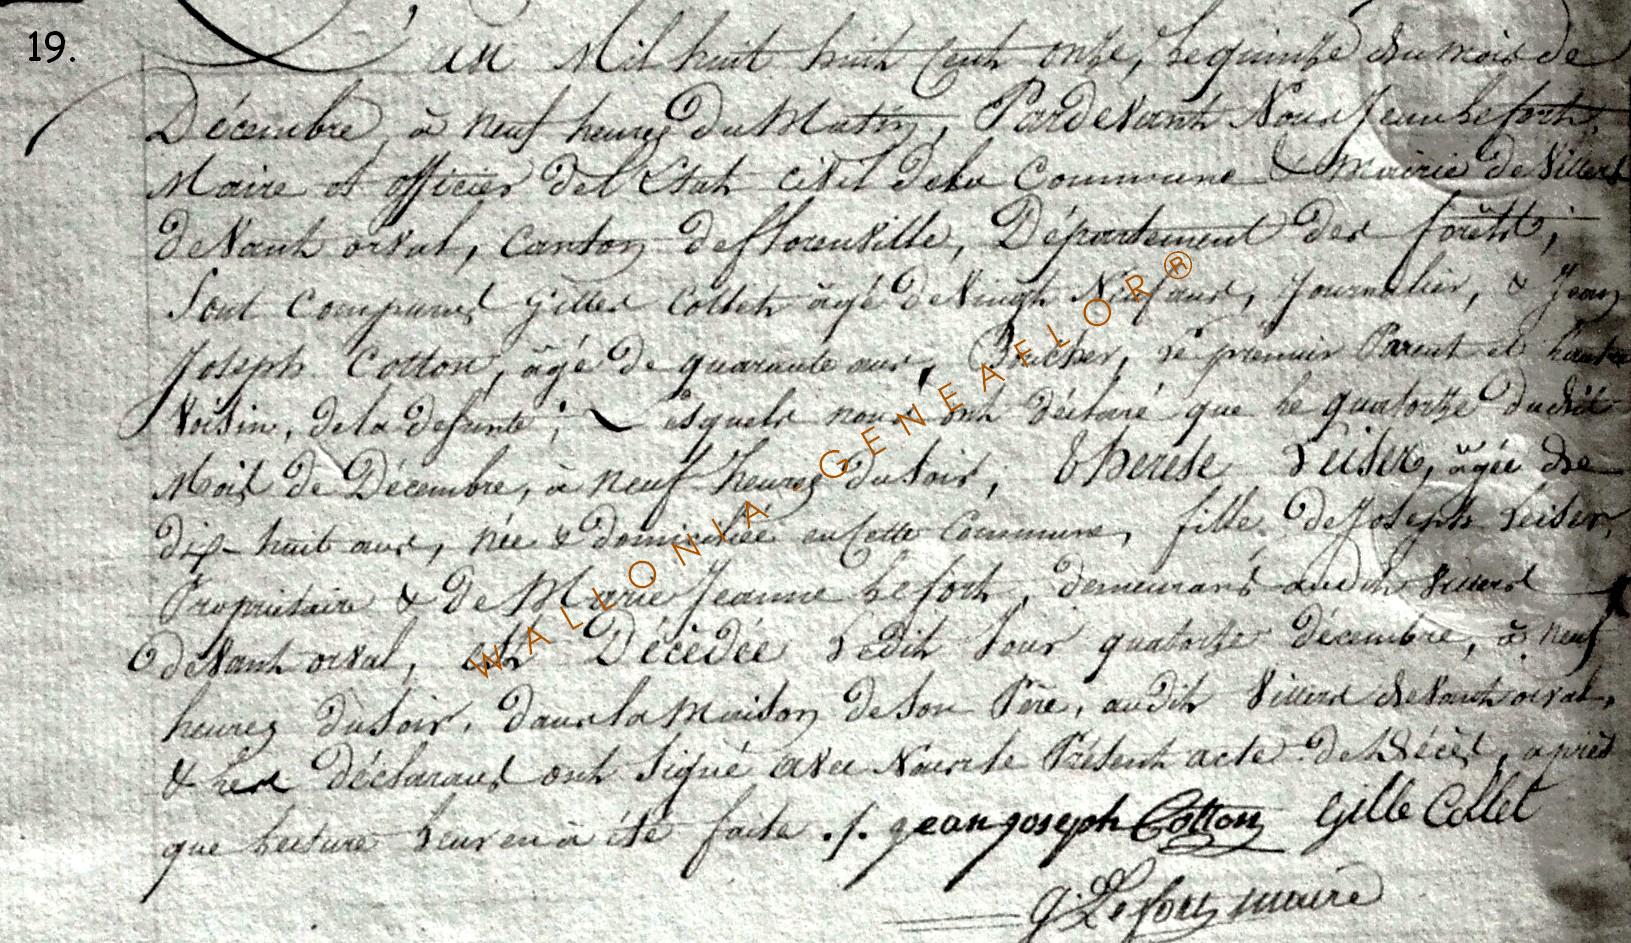 19.
L'an Mil huit huit Cent onze, le quinze du mois de
Décembre, à neuf heures du Matin, Pardevant Nous Jean Lefort,
Maire et officier del Etat civil dela Commune & Mairie de Villers
devant orval, Canton de florenville, Département des forêts;
Sont Comparus Gilles Collet âgé de Vingt Neuf ans, Journalier, & Jean
Joseph Cotton, âgé de quarante ans, le premier Parent et l'autre
Voisin, de la defunte; Lesquels nous ont déclaré que le quatorze dudit
Mois de Décembre, à neuf heures du Soir, Therese Leiser, âgée de
dix-huit ans, née & domiciliée en Cette Commune, fille de Joseph Leiser,
Propriétaire & de Marie Jeanne Lefort, demeurans audit Villers
devant orval, est Décédée Ledit Jour quatorze décembre, à neuf
heures du Soir, dans la Maison de Son Père, audit Villers devant orval,
& les déclarans ont Signé avec Nous le Présent acte de Décès, après
que Lecture Leur en à été faite ./. jean joseph Cotton Gille Collet
J. Lefort maire
WALLONIA GENEAELOR®